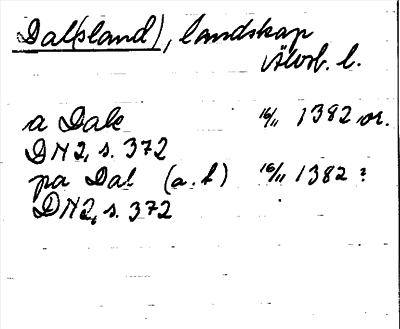 Dal(sland), landskap
Älvsb. l.
a Dale 16/11 1382 or.
DN 2, s. 372
pa Dal (a. h) 16/11 1382 ?
DN 2, s. 372